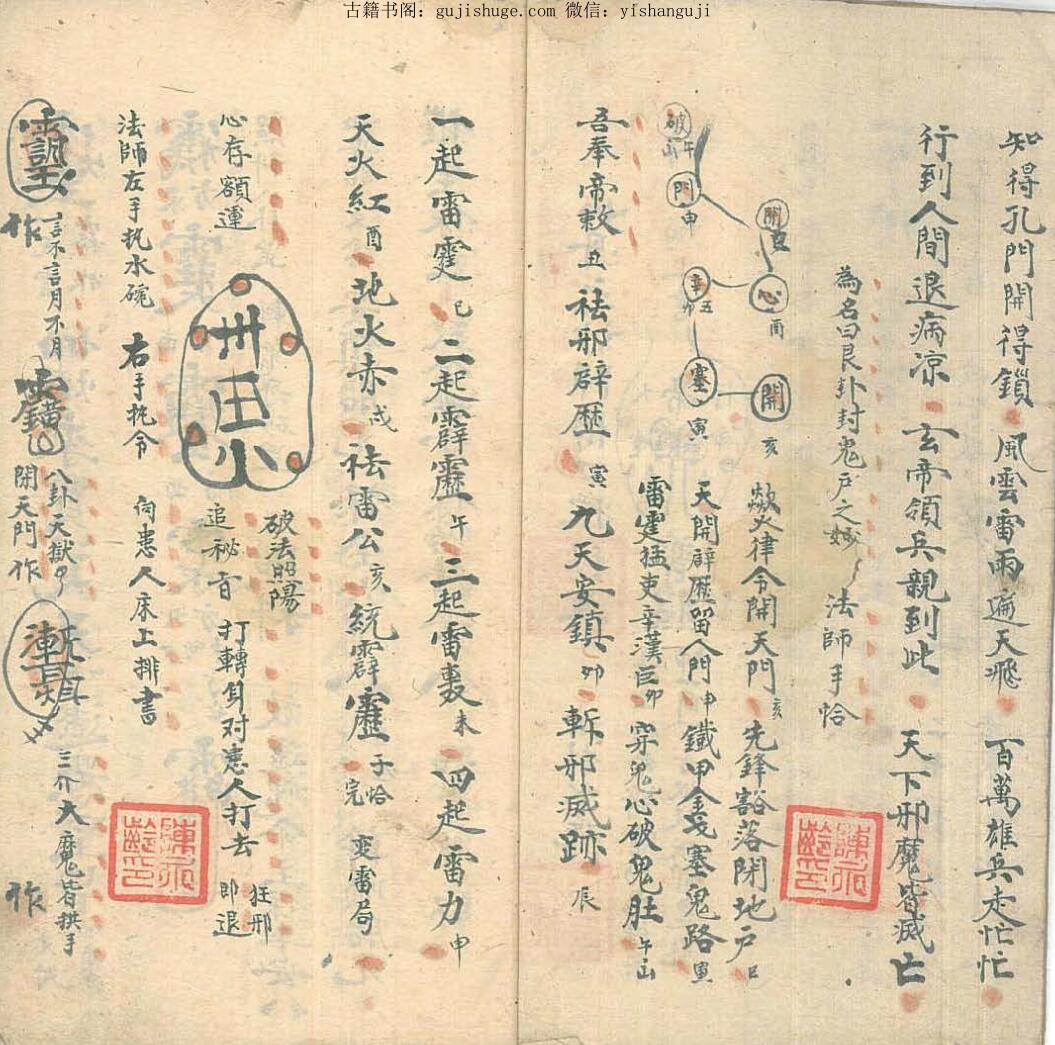 古籍书阁：gujishuge.com 微信：yishanguji
知得孔門開得鎖 風雲雷雨遍天飛 百萬雄兵走忙忙
行到人間退病凉 玄帝領兵親到此 天下邪魔皆滅亡
為名曰艮卦封鬼户之妙 法師手恰
破 午山
門 申
開
心 酉
辛 五 卯
塞 寅
開 亥
歘火律令開天門亥 先鋒豁落閉地户巳
天開辟歷留人門申 鐵甲金戈塞鬼路寅
雷霆猛吏辛漢臣卯 穿鬼心破鬼肚午山
吾奉帝敕丑 袪邪辟歷寅 九天安鎮卯 斬邪滅跡 辰
一起雷霆巳 二起霹靂午 三起雷轰未 四起雷力申
天火紅酉 地火赤戌 袪雷公亥 統霹靂子 恰完 变雷局
心存額運
破法陽
追秘音 打轉身对患人打去 狂邪即退
法師左手执水碗 右手执令 向患人床上排書
作 言不言月不月
八卦天獄
閉天門作
三介大魔皆拱手 作
陳永齡印
陳永齡印